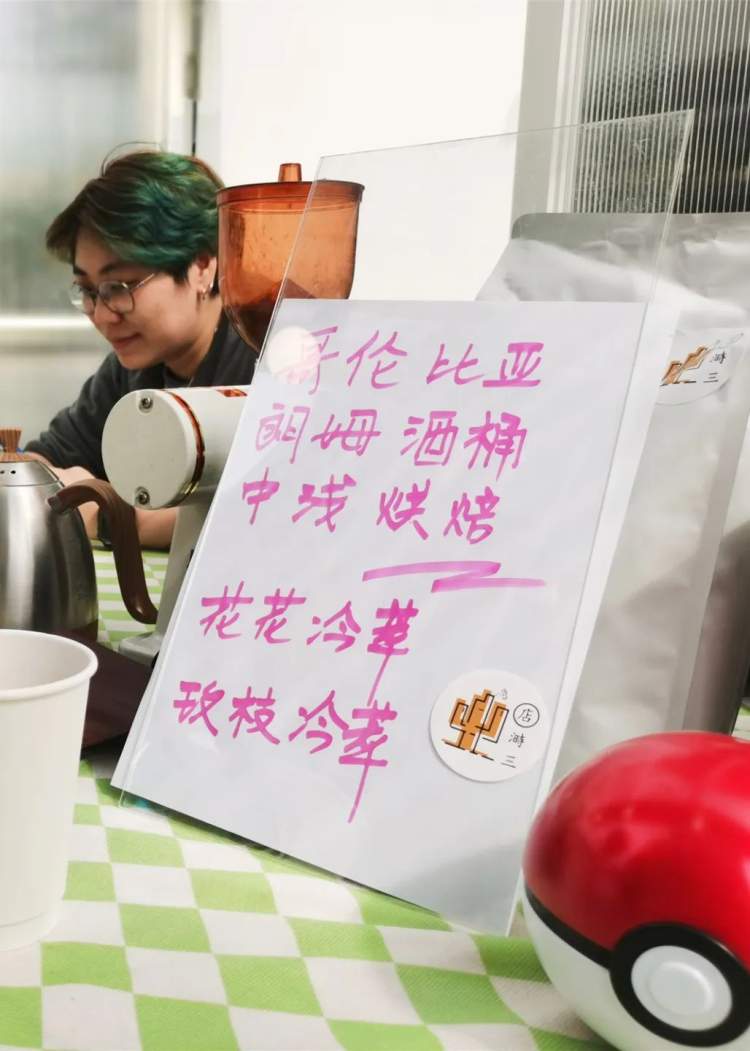 哥伦比亚
朗姆酒桶
中浅烘焙
花花冷萃
玫枝冷萃
店
游
三
游
三